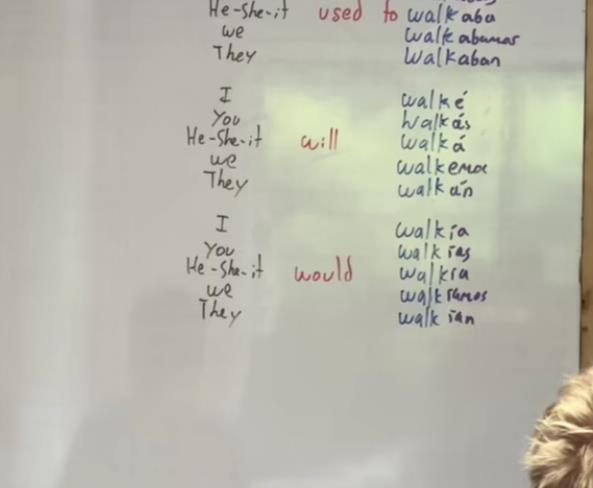 He-she-it used to walkaba
we walkabamos
They walkaban
I walké
You walkás
He-She-it will walká
we walkemos
They walkán
I walkía
You walkías
He-She-it would walkía
we walkíamos
They walkían